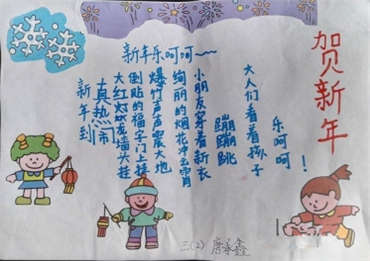 贺新年
新年乐呵呵~~~
新年到
真热闹
大红灯笼墙头挂
倒贴的福字门上
爆竹声声震大地
绚丽的烟花冲云霄
小朋友穿着新衣
蹦蹦跳
大人们看着孩子
乐呵呵！
三(2)